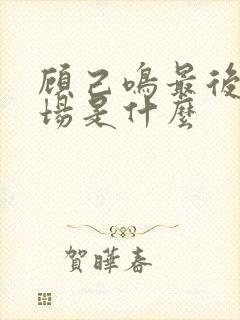 顧己鳴最後
場是什麼
賀曄春